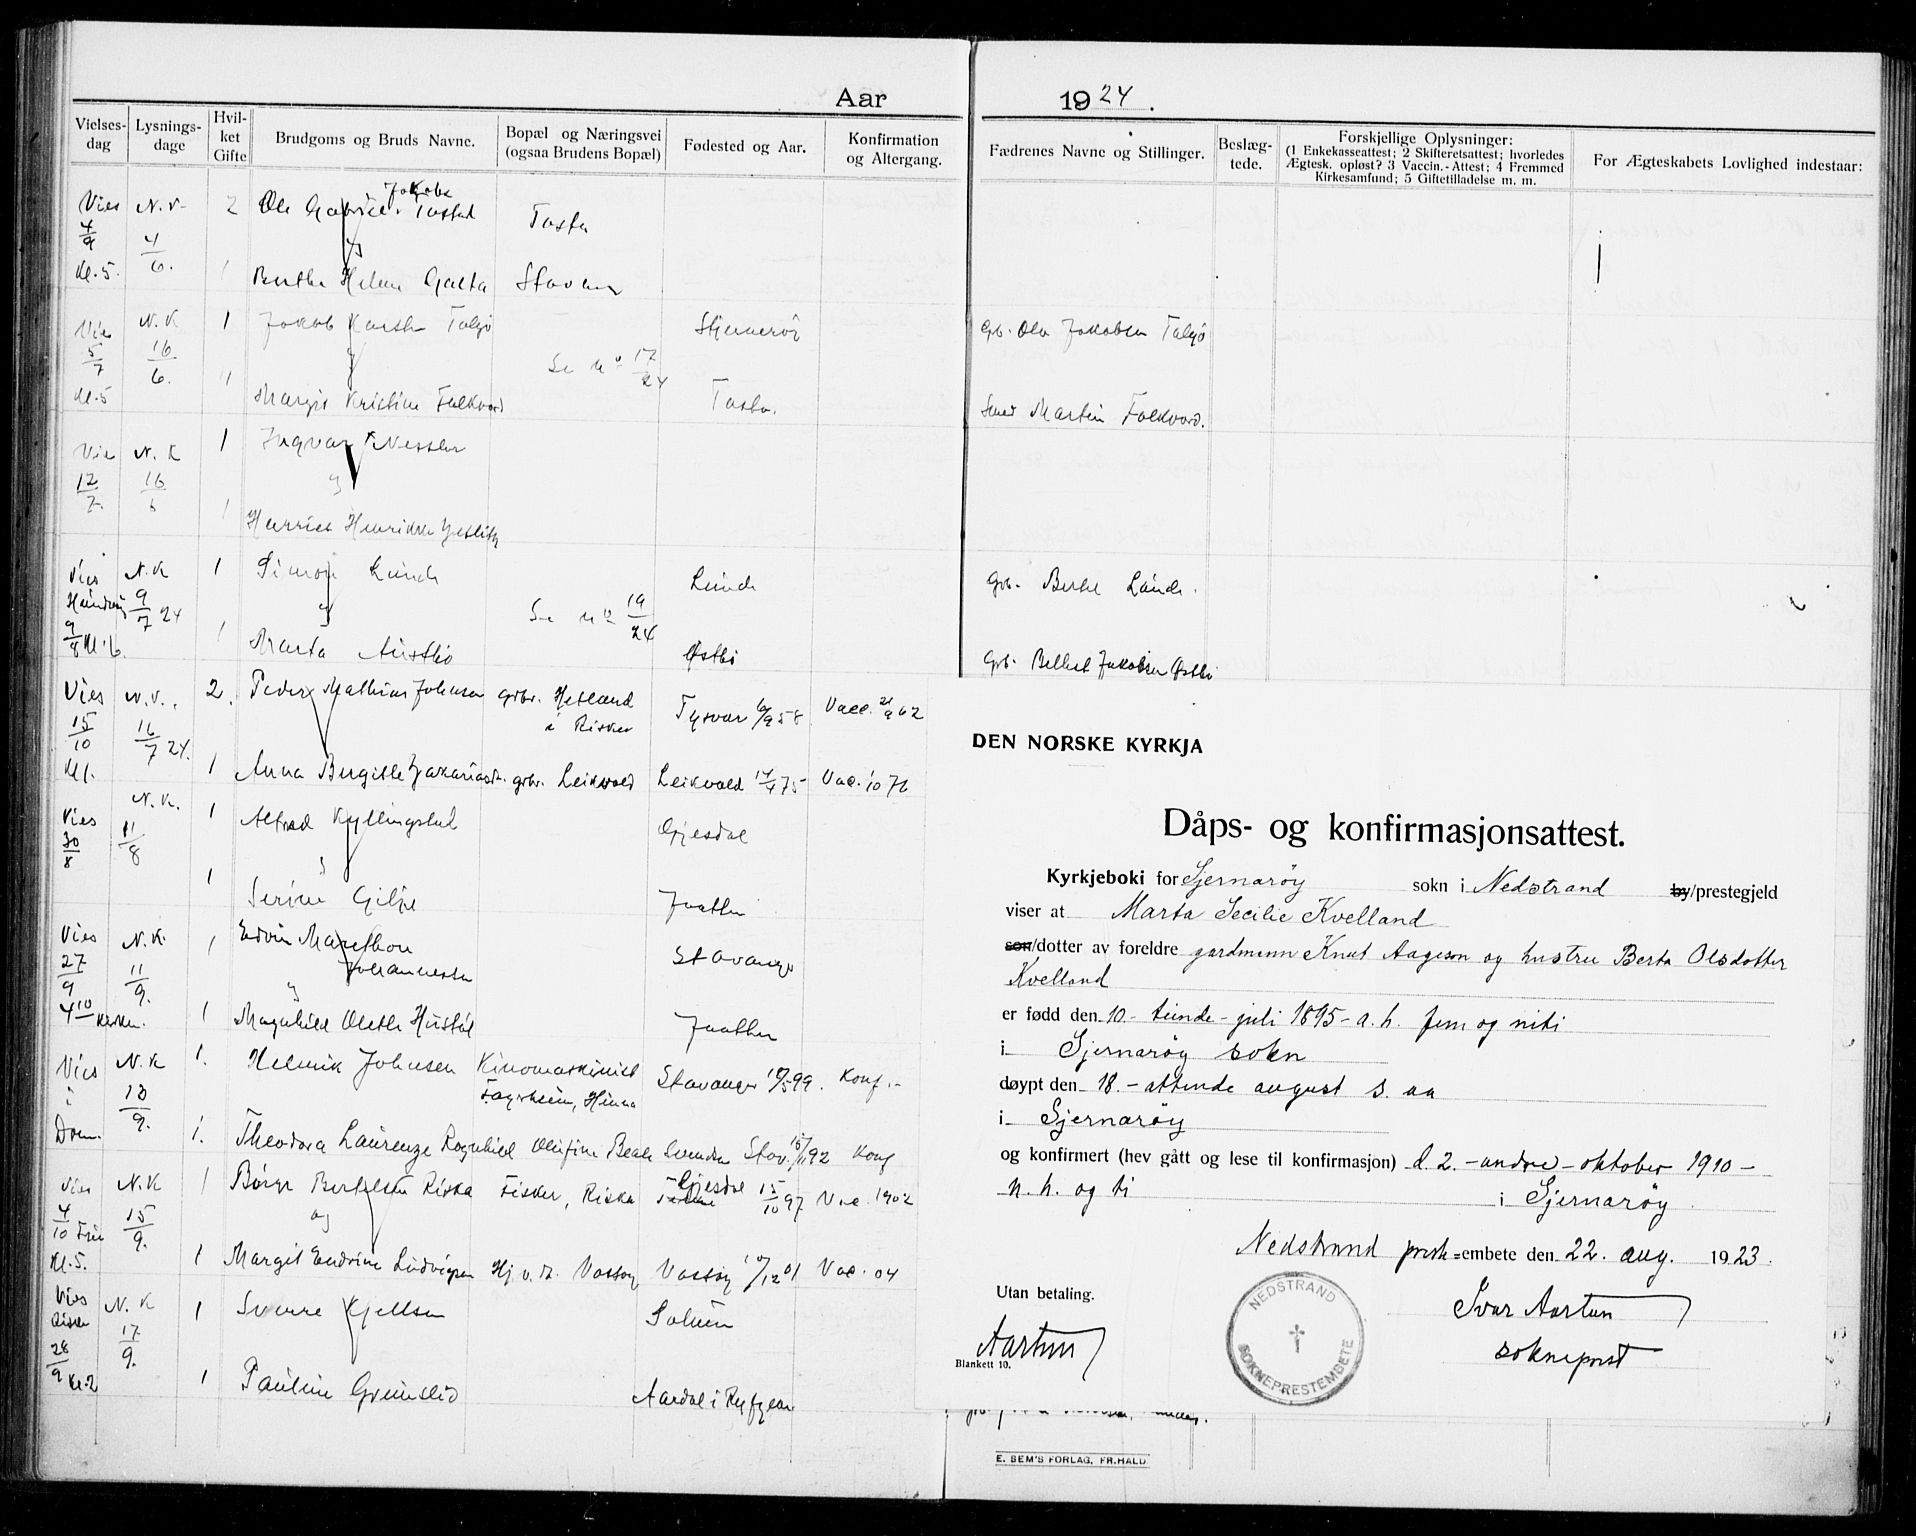 Aar 1924.
Vielses-dag
Lysnings-dage
Hvil-ket Gifte
Brudgoms og Bruds Navne.
Bopæl og Næringsvei (ogsaa Brudens Bopæl)
Fødested og Aar.
Konfirmation og Altergang.
Fædrenes Navne og Stillinger.
Beslæg-tede.
Forskjellige Oplysninger:
(1 Enkekasseattest; 2 Skifteretsattest; hvorledes
Ægtesk. opløst? 3 Vaccin.-Attest; 4 Fremmed
Kirkesamfund; 5 Giftetilladelse m. m.
For Ægteskabets Lovlighed indestaar:
Jakobs
Vies N.V. 2 Ole Gabriel Tastad Tasta
4/9 4/6.
Kl. 5. 1 Berthe Helene Galta Stavan
Vies N.K 1 Jakob Karsten Talgø Stjernerøy Gb. Ola Jakobsen Talgø
5/7 16/6. Se nº 17/24
Kl. 5 1 Margit Kristine Folkvord Tasta. Smed Martin Folkvord.
Vie N.K 1 Ingvar Nessler
12/7. 16/6
1 Harriet Henrikke
Vies N.K 1 Simon Lunde Lunde Grb. Bertel Lunde.
9/7 24 Se nº 19/24
9/8 Kl. 6. 1 Marta Austbø Østbø Grb. Jakobsen Østbø
Vies N.V. 2. Peder Mathias Johnsen grbr. Hetland i Riska Tysvær 6/9 58 Vacc. 21/9 62
15/10 16/7 24.
Kl. 1 Anna Birgitte Zakariasd. grbr. Leikvold Leikvold 75 Vac. 10 76
N.K. 1 Alfred Kyllingstad Gjesdal
Vies 30/8 11/8
1 Serine Gilje Jaatten
Vies N.K. 1 Edvin Marathon Johannessen Stavanger
27/9 11/9.
4 10 Kirken. 1 Magnhild Olethe Hustøl Jaatten
Vies N.K 1. Helmik Johnsen Kinomaskinist Stavanger 99. Konf.
i 13/9. Fagerheim, Hinna
Dom. 1. Theodora Laurenze Ragnhild Olufine Beate Svendsen Stav. 92 Konf
Vies N.K 1 Børge Bertelsen Riska Fisker, Riska Gjesdal 15/10 97 Vac. 1902
4/10 15/9. og
Kl. 5. 1 Margit Endrine Ludvigsen Hj. v. m. Vassøy Vassøy 01 Vac. 04
Vies N.K 1 Sverre Kjellsen Solum
Riska 17/9.
28/9 Kl. 2 1 Pauline Grimslid Aardal i Ryfylke
DEN NORSKE KYRKJA
Dåps- og konfirmasjonsattest.
Kyrkjeboki for Sjernarøy sokn i Nedstrand by/prestegjeld
viser at Marta Secilie Kvelland
son/dotter av foreldre gardmann Knut Aageson og hustru Berta Olsdotter
Kvelland
er fødd den 10 - tiende - juli 1895 - a. h. fem og niti
i Sjernarøy sokn
døypt den 18. - attende august s. aa
i Sjernarøy
og konfirmert (hev gått og lese til konfirmasjon) d. 2. - andre - oktober 1910 -
n. h. og ti i Sjernarøy
Nedstrand prest=embete den 22. aug. 1923.
Utan betaling.
Aartun
Blankett 10.
NEDSTRAND
SOKNEPRESTEMBETE
Ivar Aartun
sokneprest
E. SEM'S FORLAG, FR.HALD